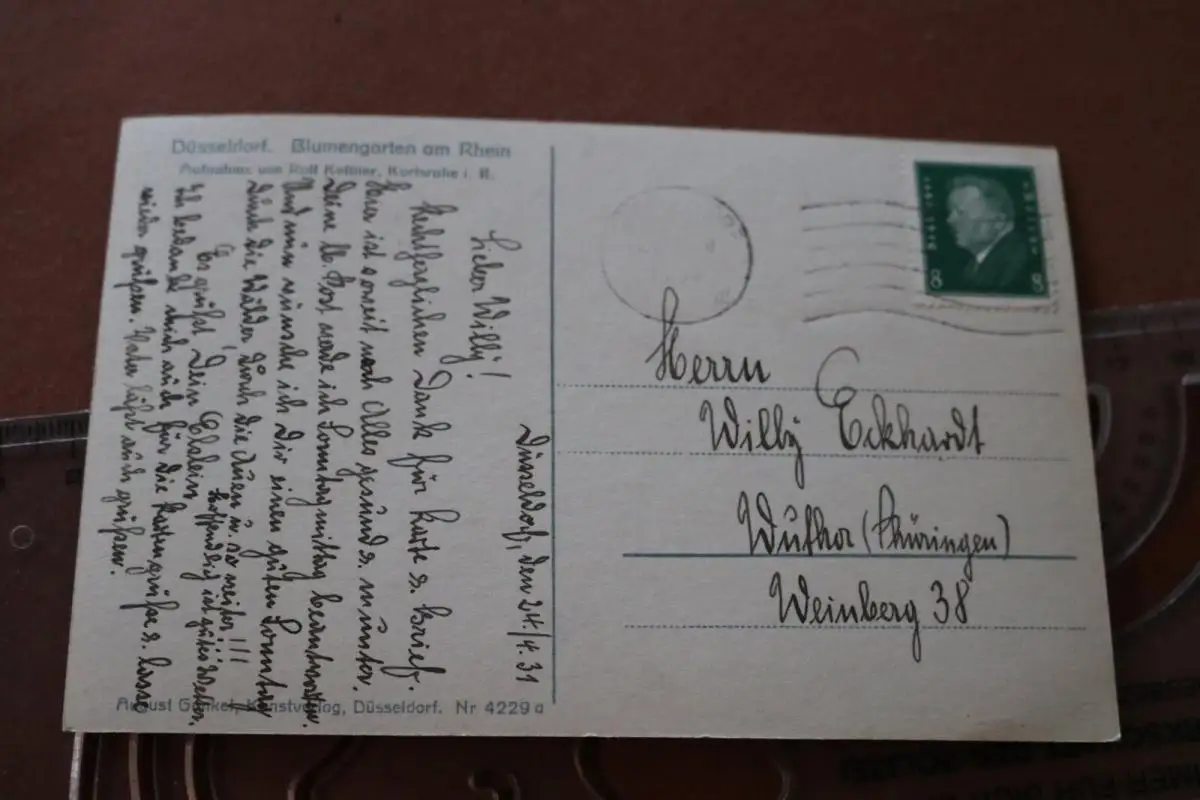 Düsseldorf. Blumengarten am Rhein
Aufnahme von Rolf Kellner, Karlsruhe i. B.
Düsseldorf, den 24./4.31
Lieber Willy!
Herzlichen Dank für Karte u. Brief.
Hier ist soweit noch Alles gesund u. munter.
Deine lb. Post werde ich Sonntagmittag beantworten.
Und nun wünsche ich Dir einen guten Sonntag
durch die Wälder durch die Auen u. so weiter!!!
Hoffendlich ist gutes Wetter.
Es grüßt Dein
Ich bedanke mich auch für die Kartengrüße u. lasse
wieder grüßen. Vater läßt auch grüßen.
August Gunkel, Kunstverlag, Düsseldorf. Nr 4229 a
8 8
Herrn
Willy Eckhardt
Wutha (Thüringen)
Weinberg 38